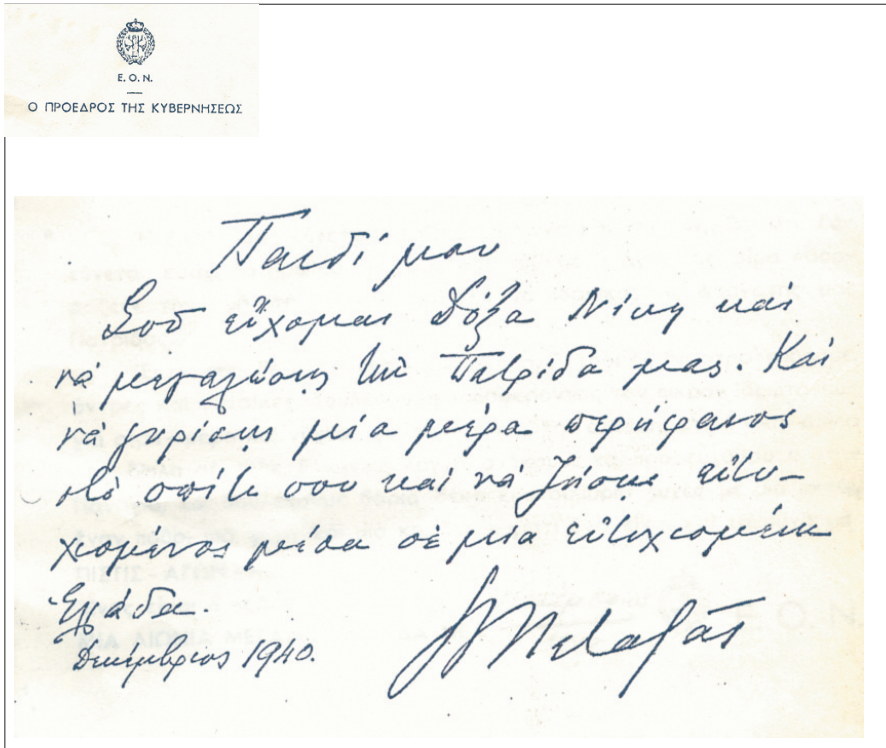 Ε.Ο.Ν.
Ο ΠΡΟΕΔΡΟΣ ΤΗΣ ΚΥΒΕΡΝΗΣΕΩΣ
Παιδί μου
Σοῦ εὔχομαι Δόξα Νίκη καὶ
νὰ μεγαλώσης τὴν Πατρίδα μας. Καὶ
νὰ γυρίσης μία μέρα περήφανος
στὸ σπίτι σου καὶ νὰ ζήσης εὐτυ-
χισμένος μέσα σὲ μία εὐτυχισμένη
Ἑλλάδα.
Δεκέμβριος 1940.
Ι Μεταξᾶς